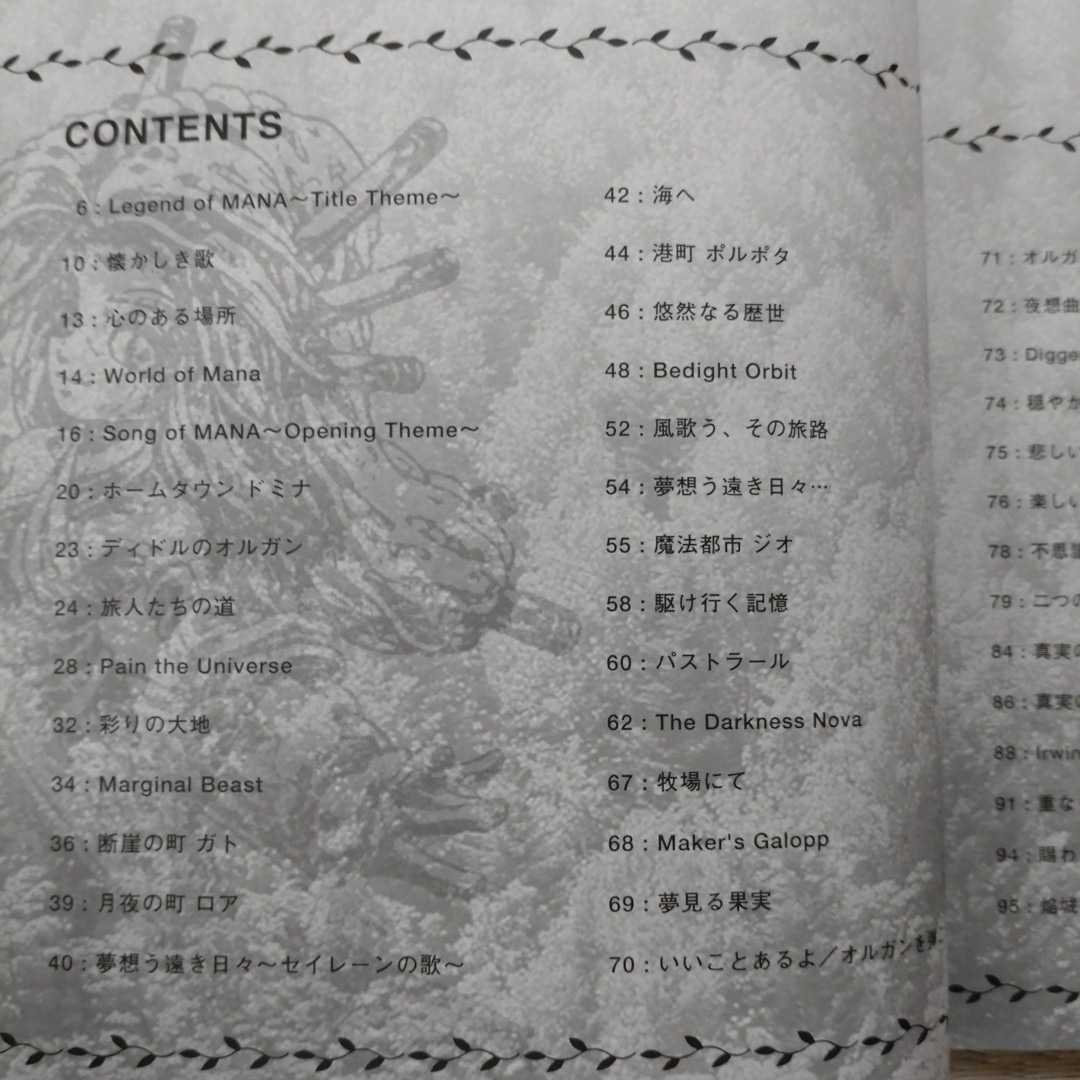 CONTENTS
6 : Legend of MANA〜Title Theme〜
10 : 懐かしき歌
13 : 心のある場所
14 : World of Mana
16 : Song of MANA〜Opening Theme〜
20 : ホームタウン ドミナ
23 : ディドルのオルガン
24 : 旅人たちの道
28 : Pain the Universe
32 : 彩りの大地
34 : Marginal Beast
36 : 断崖の町 ガト
39 : 月夜の町 ロア
40 : 夢想う遠き日々〜セイレーンの歌〜
42 : 海へ
44 : 港町 ポルポタ
46 : 悠然なる歴世
48 : Bedight Orbit
52 : 風歌う、その旅路
54 : 夢想う遠き日々…
55 : 魔法都市 ジオ
58 : 駆け行く記憶
60 : パストラール
62 : The Darkness Nova
67 : 牧場にて
68 : Maker's Galopp
69 : 夢見る果実
70 : いいことあるよ／オルガンを
71 : オルガ
72 : 夜想曲
73 : Digge
74 : 穏やか
75 : 悲しい
76 : 楽しい
78 : 不思議
79 : 二つの
84 : 真実の
86 : 真実の
88 : Irwin
91 : 重な
94 : 賜わ
95 : 焔城